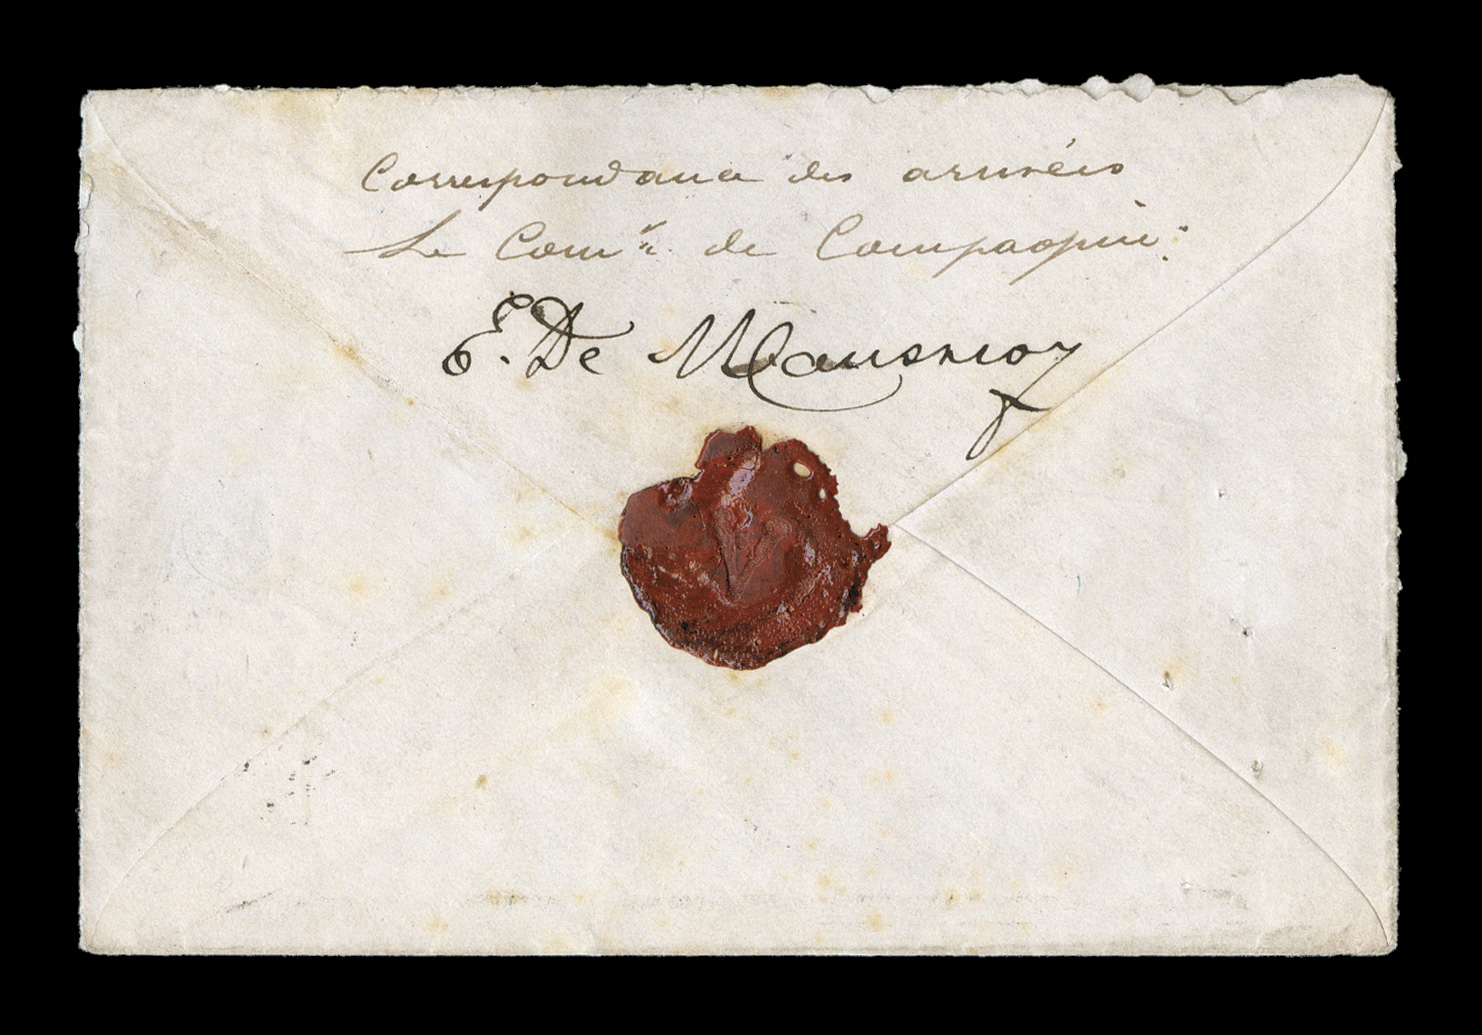 Correspondance des armées
Le Com<sup>dt</sup> de Compagnie
E. De Mausnroy